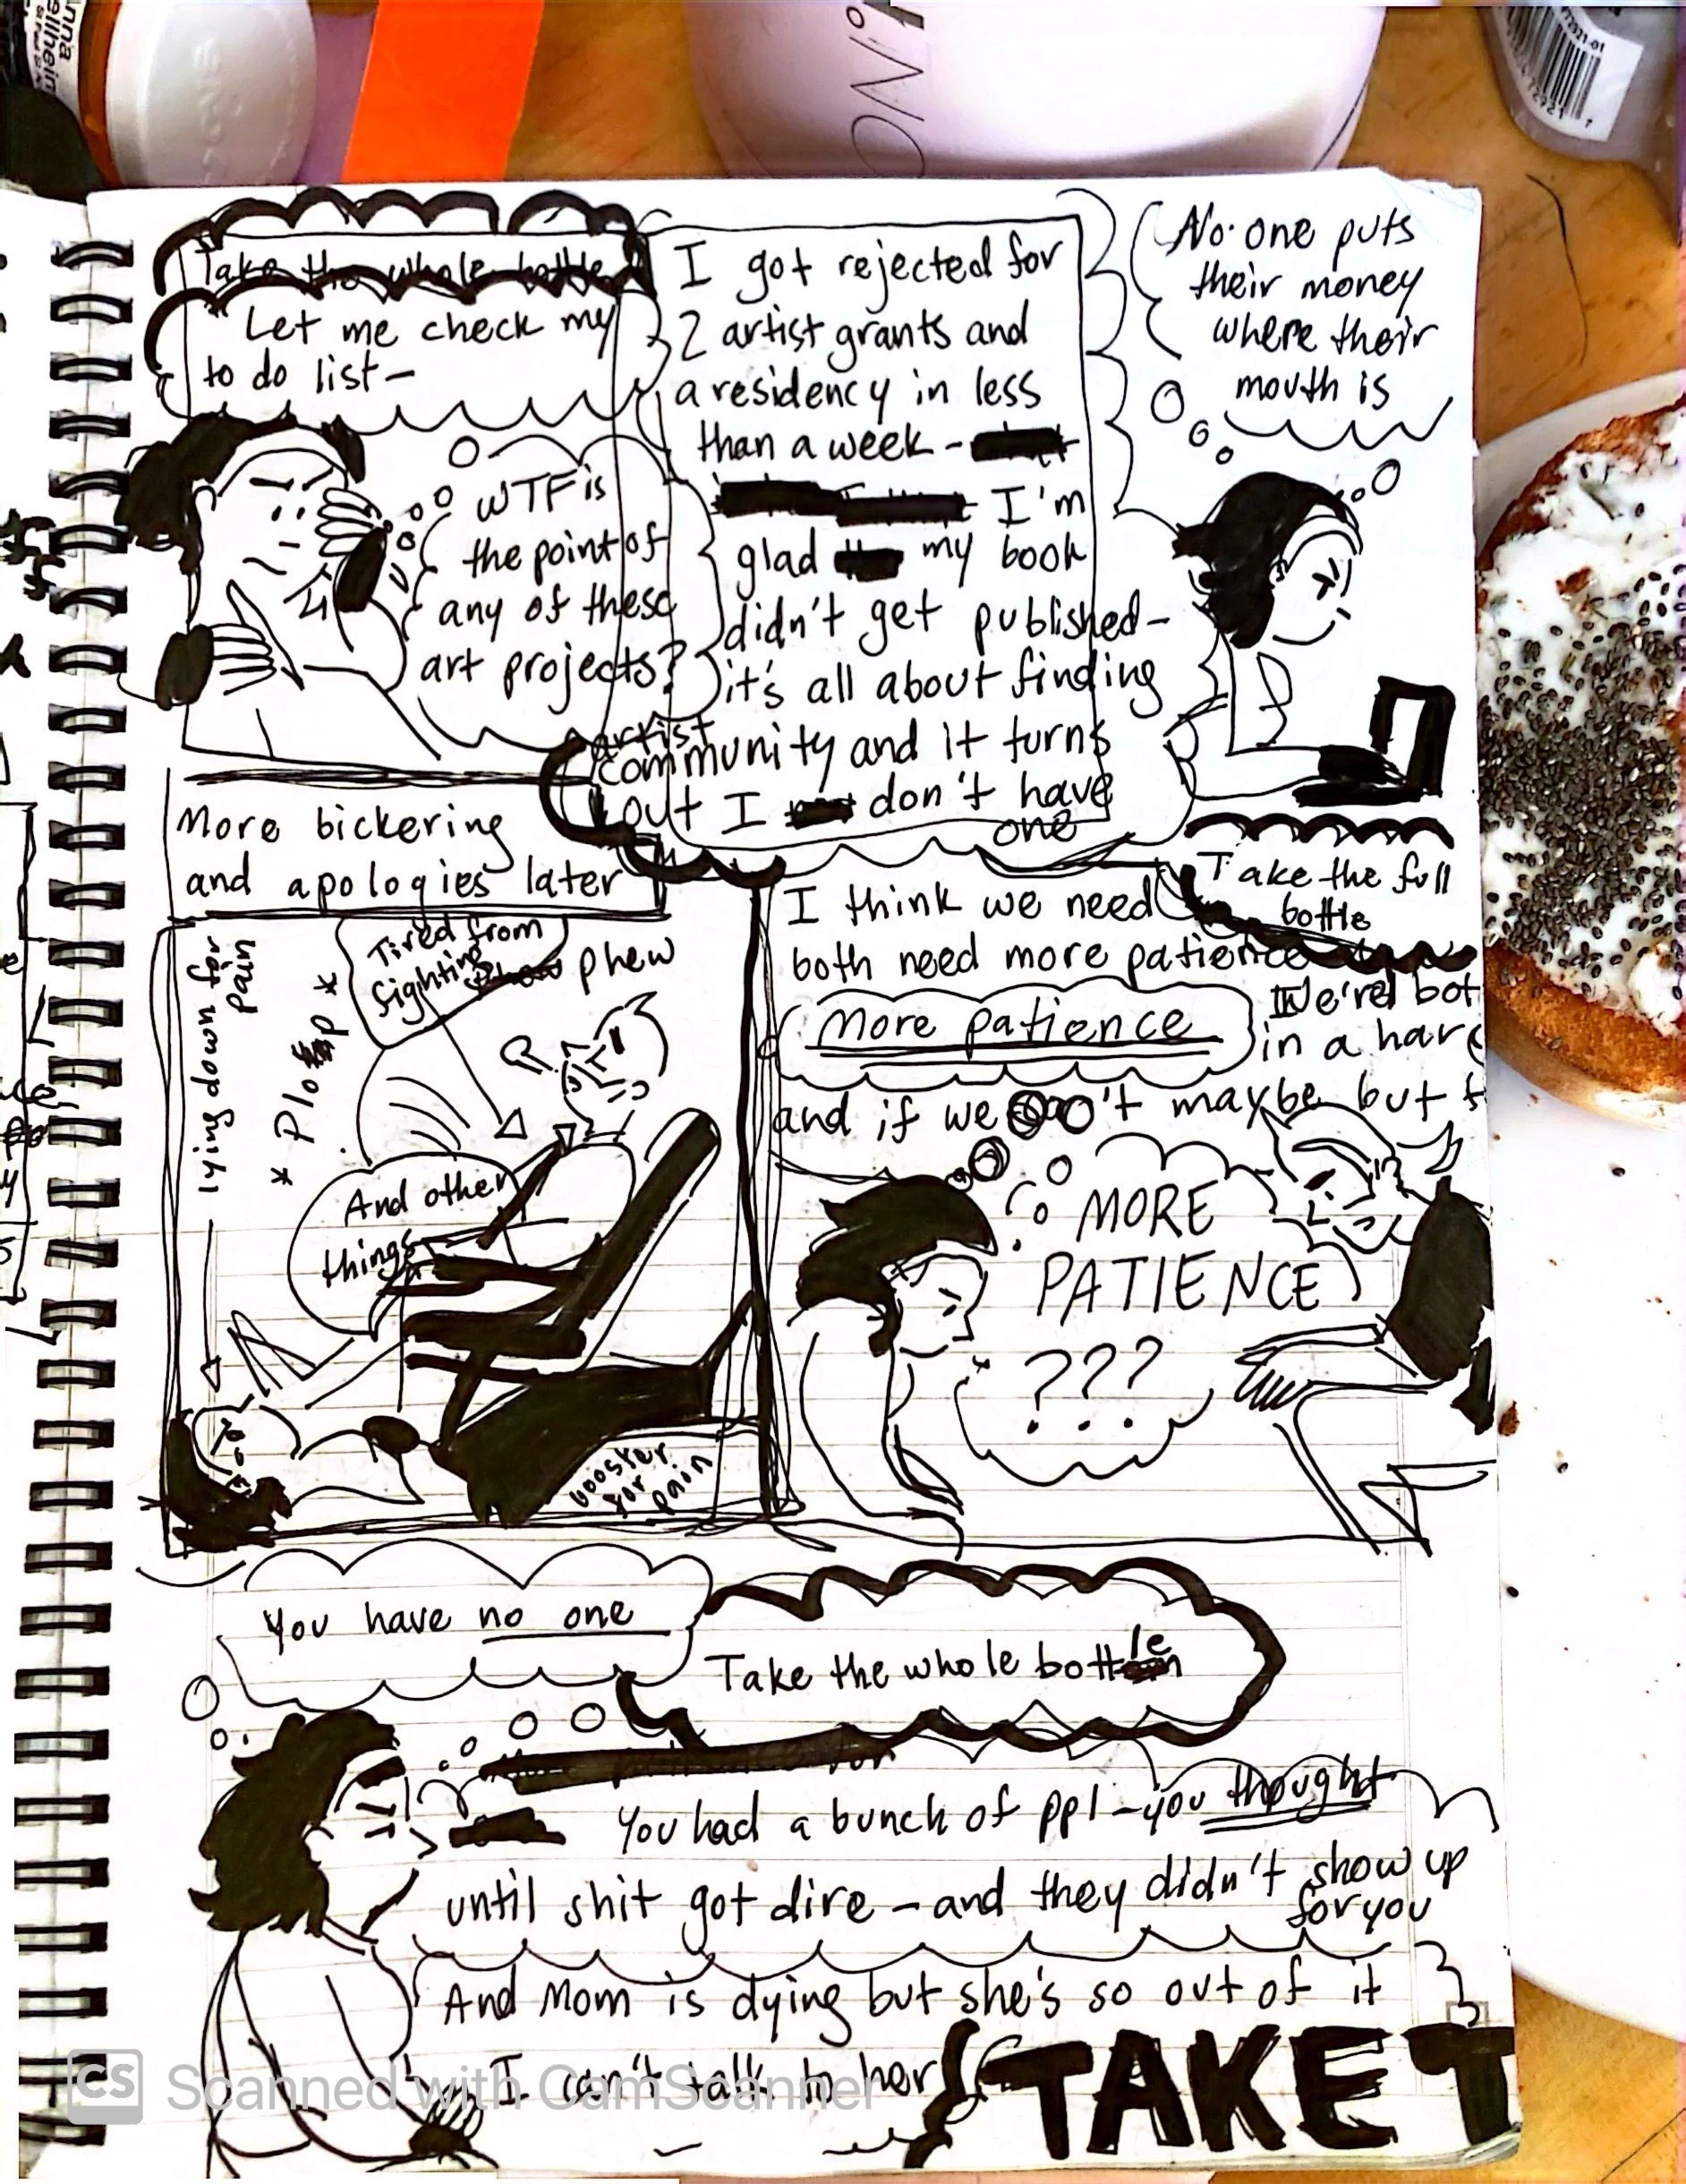 Take the whole bottle
Let me check my
to do list —
WTF is
the point of
any of these
art projects?
I got rejected for
2 artist grants and
a residency in less
than a week -
I'm
glad my book
didn't get published -
it's all about finding
artist
community and it turns
out I don't have
one
No one puts
their money
where their
mouth is
More bickering
and apologies later
lying down for
pain
* Plop *
Tired from
fighting
phew
And other
things
booster
for
pain
Take the full
bottle
I think we need
both need more patience
More patience
We're bot
in a har
and if we maybe but
MORE
PATIENCE
???
You have no one
Take the whole bottle
You had a bunch of ppl - you thought
until shit got dire - and they didn't show up
for you
And Mom is dying but she's so out of it
I can't talk to her
TAKE T
CS Scanned with CamScanner